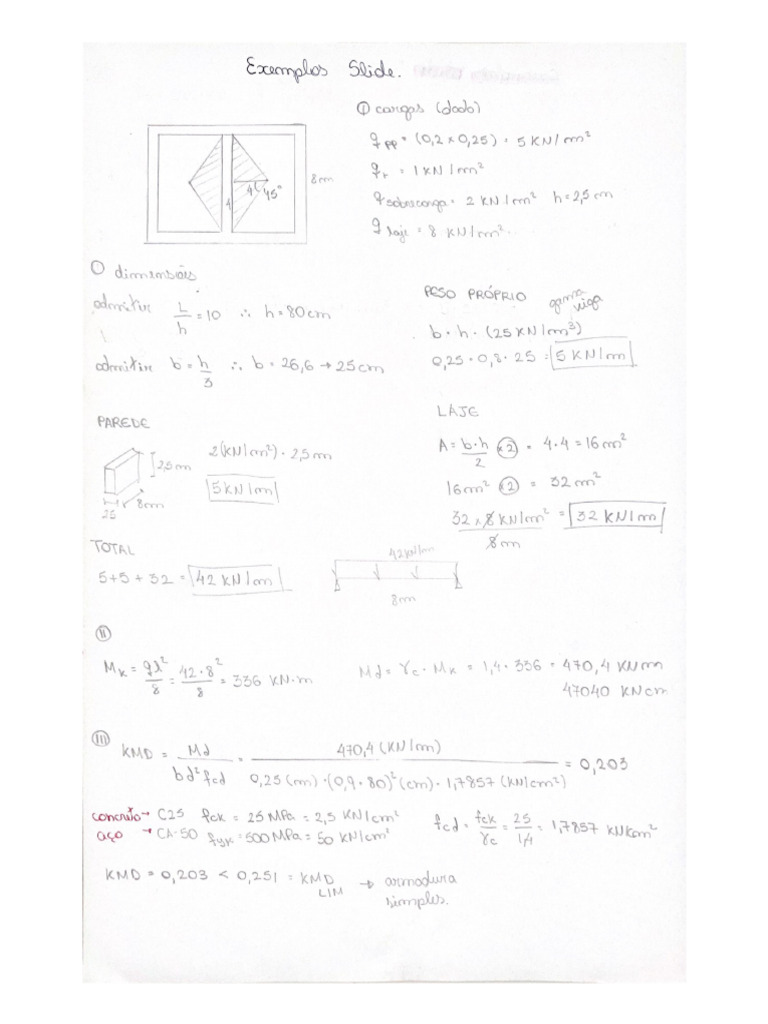 Exemplos Slide.
① cargas (dado)
q pp = (0,2 x 0,25) = 5 KN/m²
q r = 1 KN/m²
8m
4 45°
4
q sobrecarga = 2 KN/m² h = 2,5m
q laje = 8 KN/m²
① dimensões
admitir L/h = 10 ∴ h = 80cm
admitir b = h/3 ∴ b = 26,6 → 25cm
PESO PRÓPRIO gama viga
b · h · (25 KN/m³)
0,25 · 0,8 · 25 = 5 KN/m
PAREDE
2(KN/m²) · 2,5m
5KN/m
2,5m
8m
25
LAJE
A = b·h/2 x2 = 4·4 = 16m²
16m² x2 = 32m²
32 x 8 KN/m² / 8m = 32 KN/m
TOTAL
5+5+32 = 42 KN/m
42KN/m
8m
II
Mk = ql²/8 = 42·8²/8 = 336 KN·m
Md = γc · Mk = 1,4 · 336 = 470,4 KNm
47040 KNcm
III
KMD = Md / bd²fcd = 470,4 (KN/m) / 0,25(m)·(0,9·80)²(cm)·1,7857(KN/cm²) = 0,203
concreto → C25 fck = 25 MPa = 2,5 KN/cm²
aço → CA-50 fyk = 500 MPa = 50 KN/cm²
fcd = fck/γc = 25/1,4 = 1,7857 KN/cm²
KMD = 0,203 < 0,251 = KMD LIM → armadura
simples.